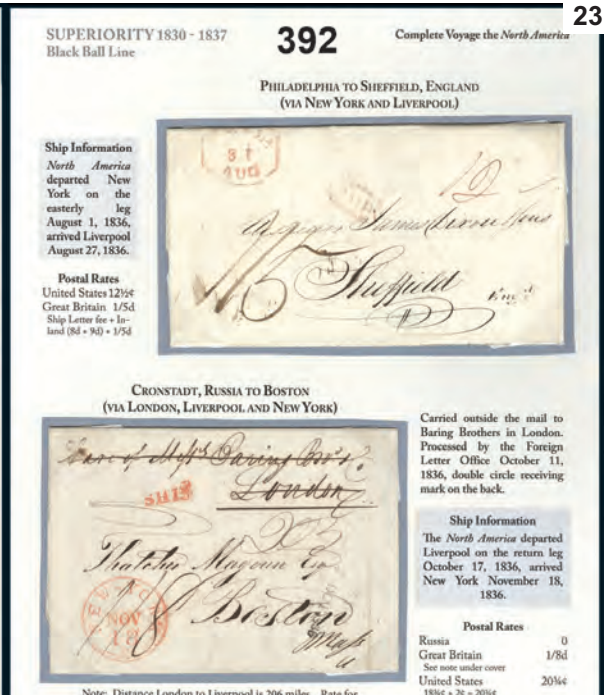 23
SUPERIORITY 1830 - 1837
Black Ball Line
392
Complete Voyage the North America
PHILADELPHIA TO SHEFFIELD, ENGLAND
(VIA NEW YORK AND LIVERPOOL)
Ship Information
North America
departed New
York on the
easterly leg
August 1, 1836,
arrived Liverpool
August 27, 1836.
Postal Rates
United States 12½¢
Great Britain 1/5d
Ship Letter fee + In-
land (8d + 9d) = 1/5d
31
AUG
12
Sheffield
Engd
CRONSTADT, RUSSIA TO BOSTON
(VIA LONDON, LIVERPOOL AND NEW YORK)
Care of Messrs Baring Bros
London
SHIP
Thatcher Magoun Esq
Boston
Mass
NEW YORK
NOV
18
Carried outside the mail to
Baring Brothers in London.
Processed by the Foreign
Letter Office October 11,
1836, double circle receiving
mark on the back.
Ship Information
The North America departed
Liverpool on the return leg
October 17, 1836, arrived
New York November 18,
1836.
Postal Rates
Russia 0
Great Britain 1/8d
See note under cover
United States 20¾¢
18¾¢ + 2¢ = 20¾¢
Note: Distance London to Liverpool is 206 miles. Rate for